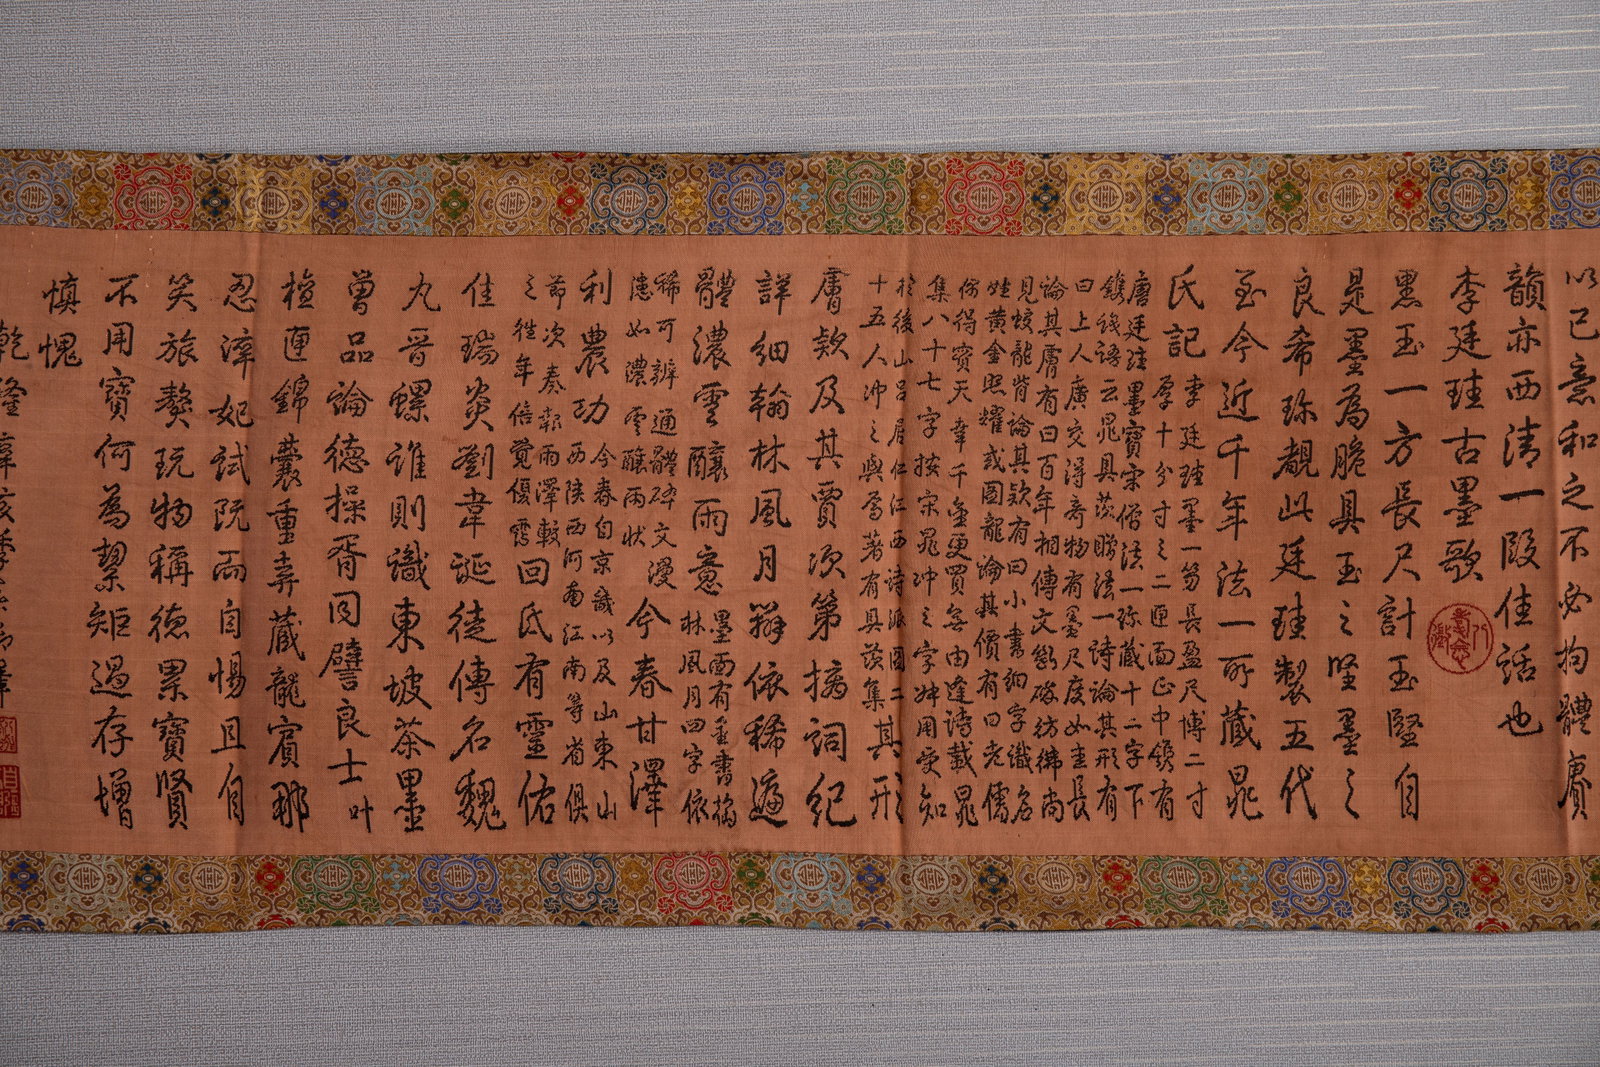 以己意和之不必拘體賡
韻亦西清一段佳話也
李廷珪古墨歌
黑玉一方長尺計玉堅自
是墨為脆具玉之堅墨之
良希珍覯此廷珪製五代
至今近千年法一所藏晁
氏記
李廷珪墨一笏長盈尺博二寸
厚十分寸之二匣面正中鐫有
唐廷珪墨寶宋僧法一珍藏十二字下
鐫錢語云晁具茨贈法一詩論其形有
曰上人廣交得奇物有墨尺度如圭長
論其膚有曰百年相傳文斷破彷彿尚
見蛟龍背論其款有曰小書細字識名
姓黃金照耀或圖龍論其價有曰老儒
何得寶天幸千金更買無由逢詩載晁
集八十七字按宋晁沖之字叔用受知
於後山呂居仁江西詩派圖二
十五人沖之與焉著有具茨集
其形
膚款及其賈次第摛詞紀
詳細翰林風月辯依稀遍
體濃雲釀雨意
墨面有金書摘
林風月四字依
稀可辨通體碎文漫
漶如濃雲釀雨狀
今春甘澤
利農功
今春自京畿以及山東山
西陝西河南江南等省俱
節次奏報雨澤較
之往年倍覺優霑
回氐有靈佑
佳瑞炎劉韋誕徒傳名魏
九晉螺誰則識東坡茶墨
曾品論德操胥同譬良士叶
檀匣錦囊重弆藏龍賓那
忍滓妃試既而自惕且自
笑旅獒玩物稱德累寶賢
不用寶何為絜矩過存增
慎愧
乾隆辛亥季